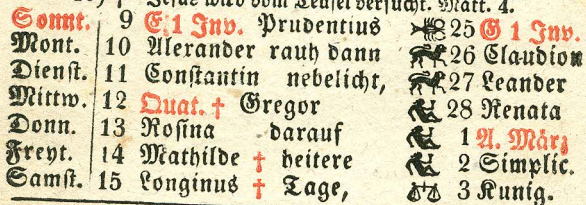 Jesus wird vom Teufel versucht. Matt. 4.
Sonnt. 9 E 1 Inv. Prudentius 25 G 1 Inv.
Mont. 10 Alexander rauh dann 26 Claudion
Dienst. 11 Constantin nebelicht, 27 Leander
Mittw. 12 Quat. † Gregor 28 Renata
Donn. 13 Rosina darauf 1 A. März
Freyt. 14 Mathilde † heitere 2 Simplic.
Samst. 15 Longinus † Tage, 3 Kunig.